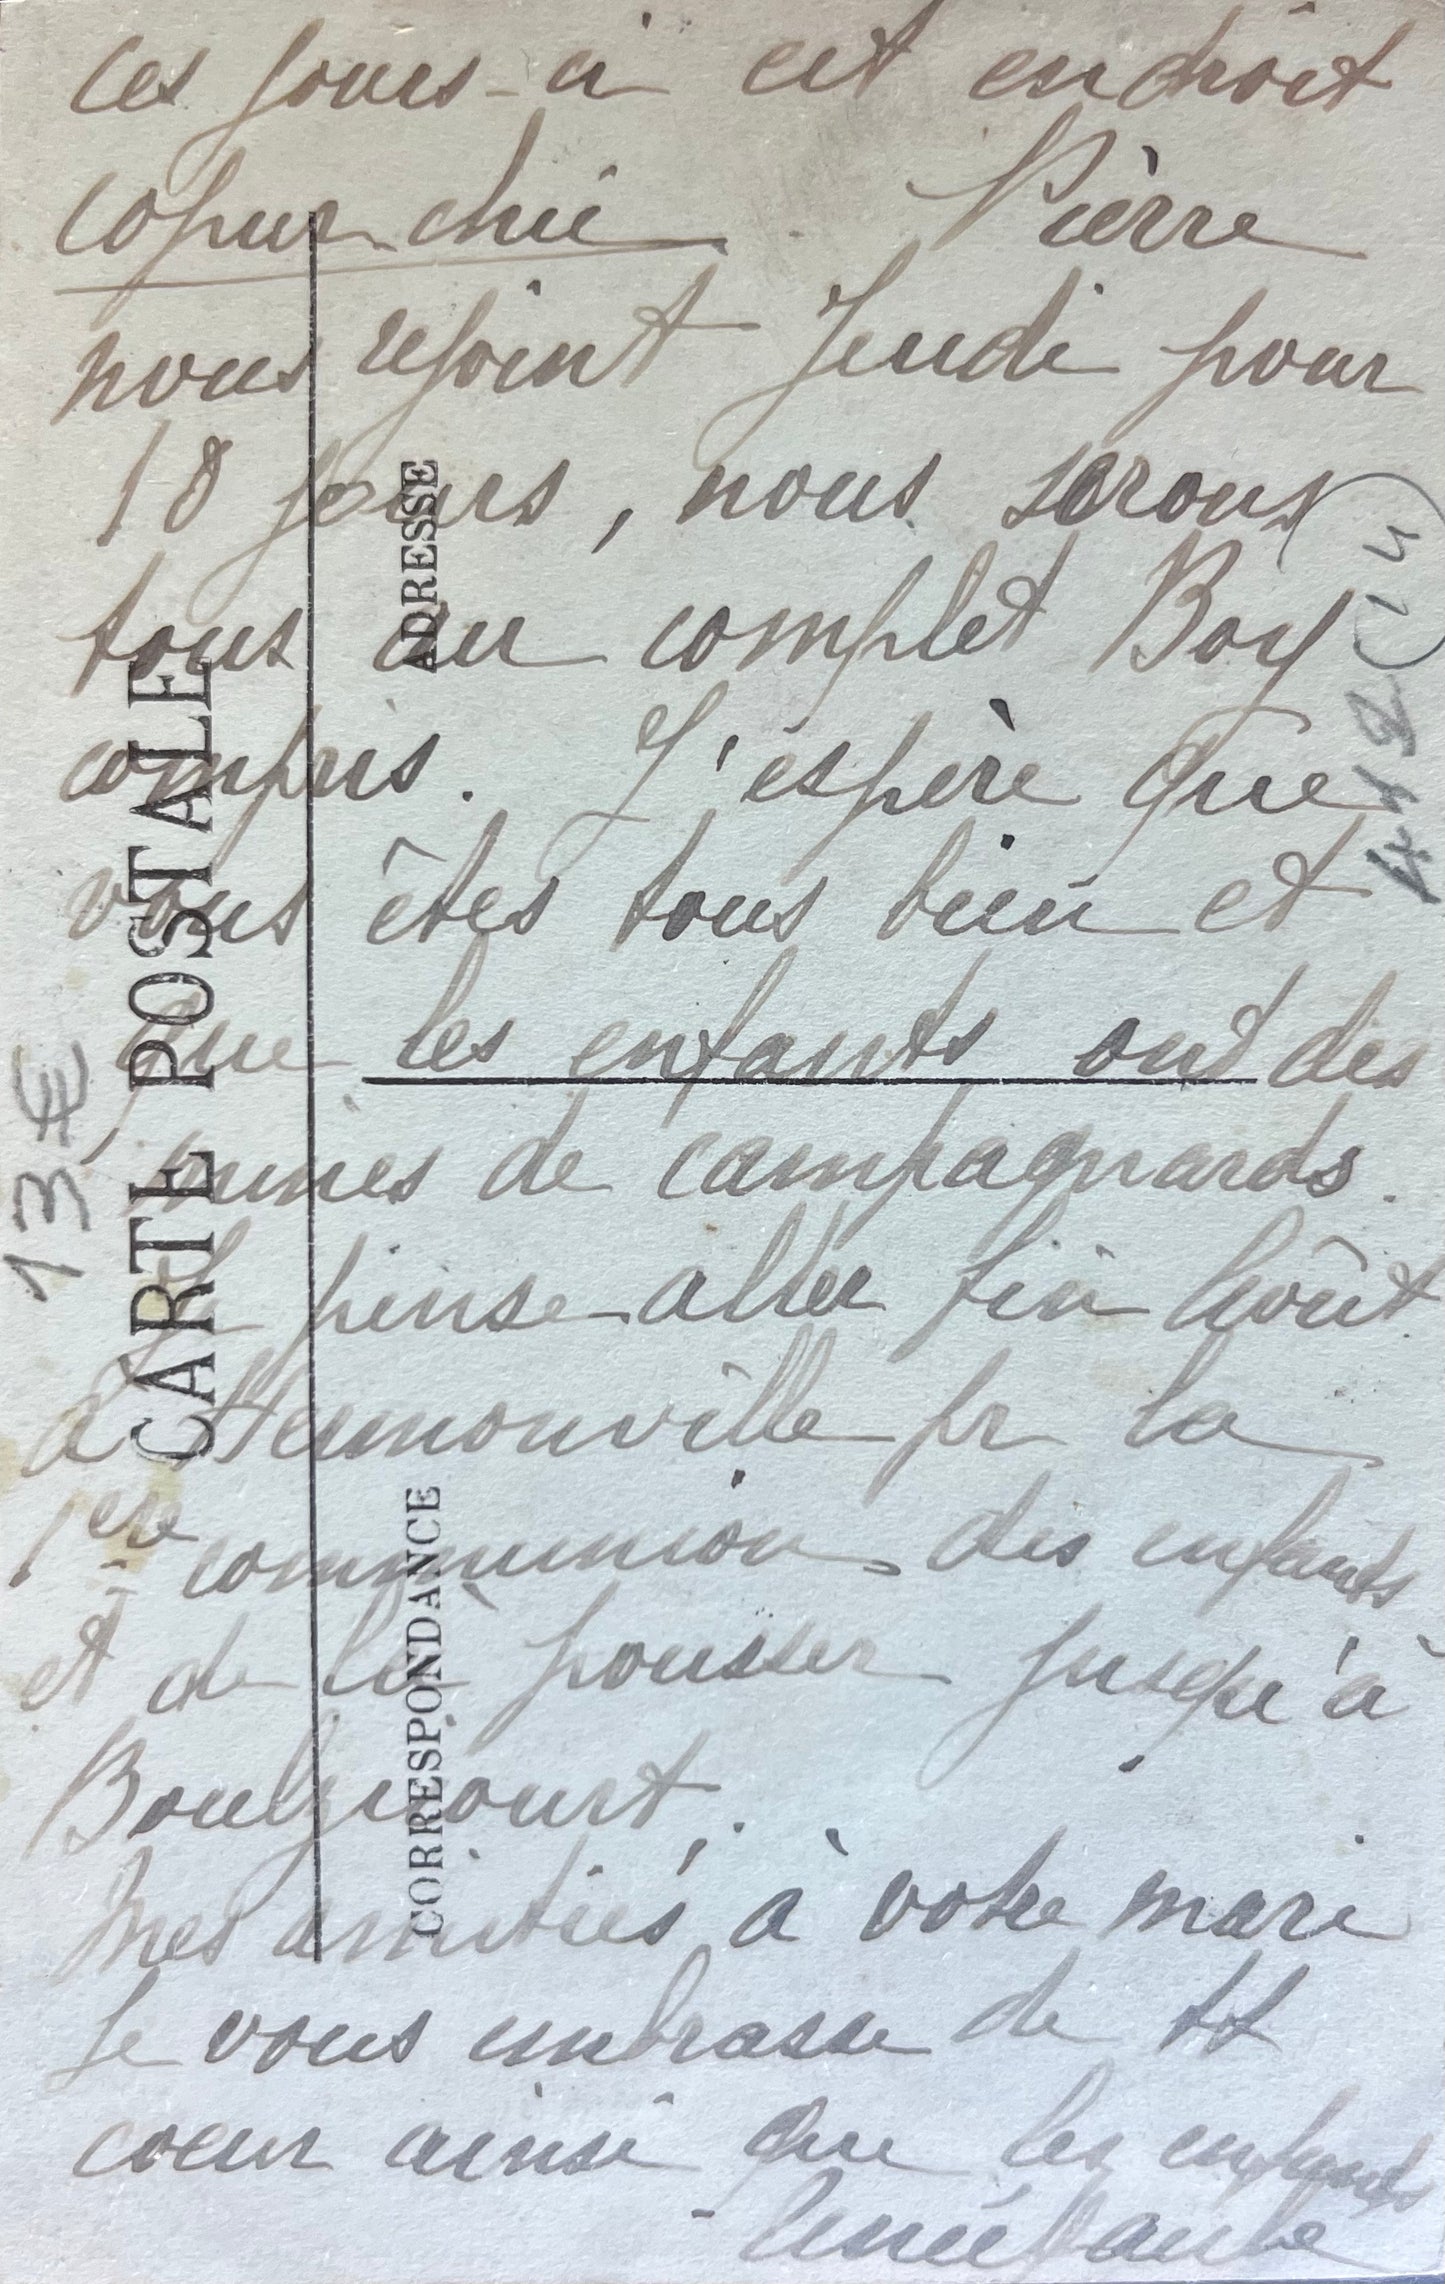 ces jours-ci cet endroit
copur chic Pierre
nous rejoint Jeudi pour
18 jours, nous serons
tous au complet Boy
compris. J'espère que
vous êtes tous bien et
que les enfants ont des
mines de campagnards.
Je pense aller fin Août
à Hermonville pr la
1ere communion des enfants
et de là pousser jusqu'à
Boulzicourt.
Mes amitiés à votre mari
Je vous embrasse de tt
coeur ainsi que les enfants
CARTE POSTALE
CORRESPONDANCE
ADRESSE
13 €